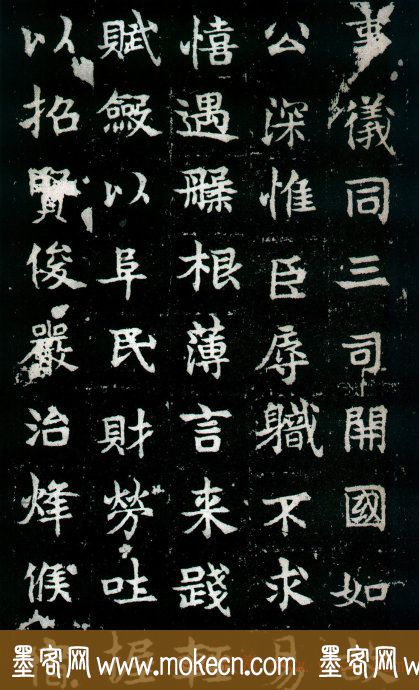 事儀同三司開國如
公深惟臣辱職不求易
憘遇根薄言来踐輕
賦斂以阜民財勞吐握
以招賢俊嚴治烽候
墨客网 www.mokecn.com 墨客网 www